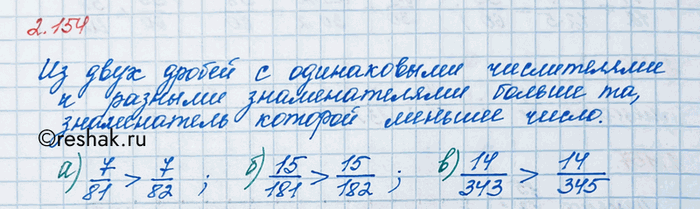 2.154
Из двух дробей с одинаковыми числителями
и разными знаменателями больше та,
знаменатель которой меньшее число.
©reshak.ru
а) 7/81 > 7/82 ; б) 15/181 > 15/182 ; в) 14/343 > 14/345